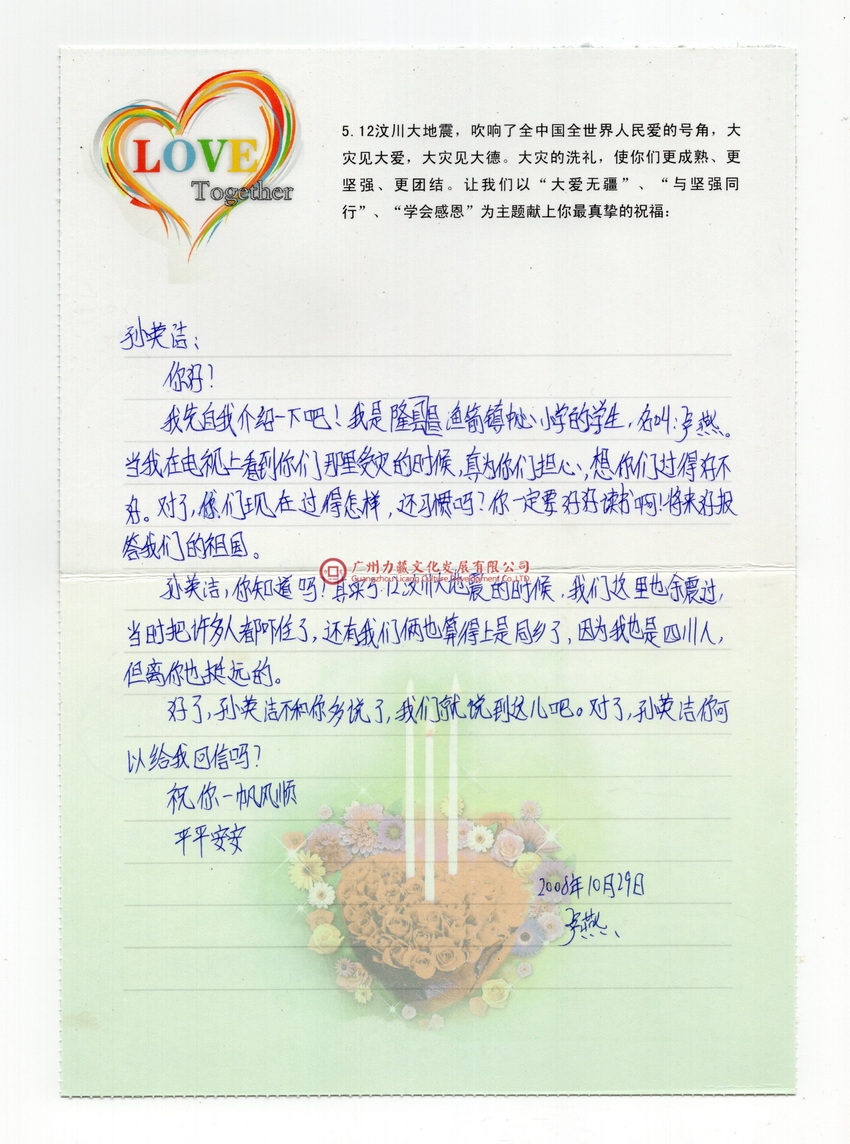 LOVE
Together
5.12汶川大地震，吹响了全中国全世界人民爱的号角，大
灾见大爱，大灾见大德。大灾的洗礼，使你们更成熟、更
坚强、更团结。让我们以“大爱无疆”、“与坚强同
行”、“学会感恩”为主题献上你最真挚的祝福：
孙英洁：
你好！
我先自我介绍一下吧！我是隆昌县渔箭镇中心小学的学生，名叫：燕。
当我在电视上看到你们那里受灾的时候，真为你们担心，想你们过得好不
好。对了，你们现在过得怎样，还习惯吗？你一定要好好读书啊！将来好报
答我们的祖国。
广州力藏文化发展有限公司
Guangzhou Licang Culture Development Co.,LTD.
孙英洁，你知道吗？其实5.12汶川大地震的时候，我们这里也余震过，
当时把许多人都吓住了，还有我们俩也算得上是同乡了，因为我也是四川人，
但离你也挺远的。
好了，孙英洁不和你多说了，我们就说到这儿吧。对了，孙英洁你可
以给我回信吗？
祝你一帆风顺
平平安安
2008年10月29日
燕